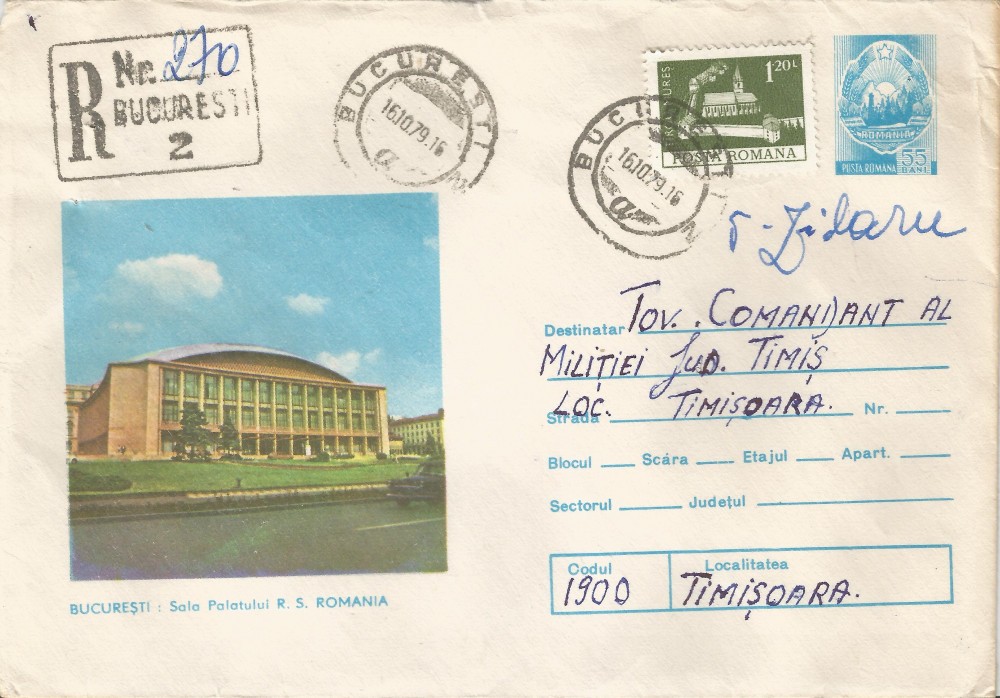 R Nr. 270
BUCURESTI
2
BUCUREȘTI
16.10.79.16
a
BUCUREȘTI
16.10.79.16
a
1 20 L
POSTA ROMANA
ROMANIA
POSTA ROMANA 55 BANI
Zidaru
Destinatar TOV. COMANDANT AL
MILIȚIEI JUD. TIMIȘ
LOC. TIMIȘOARA.
Strada Nr.
Blocul Scara Etajul Apart.
Sectorul Județul
Codul Localitatea
1900 TIMIȘOARA.
BUCUREȘTI : Sala Palatului R. S. ROMANIA